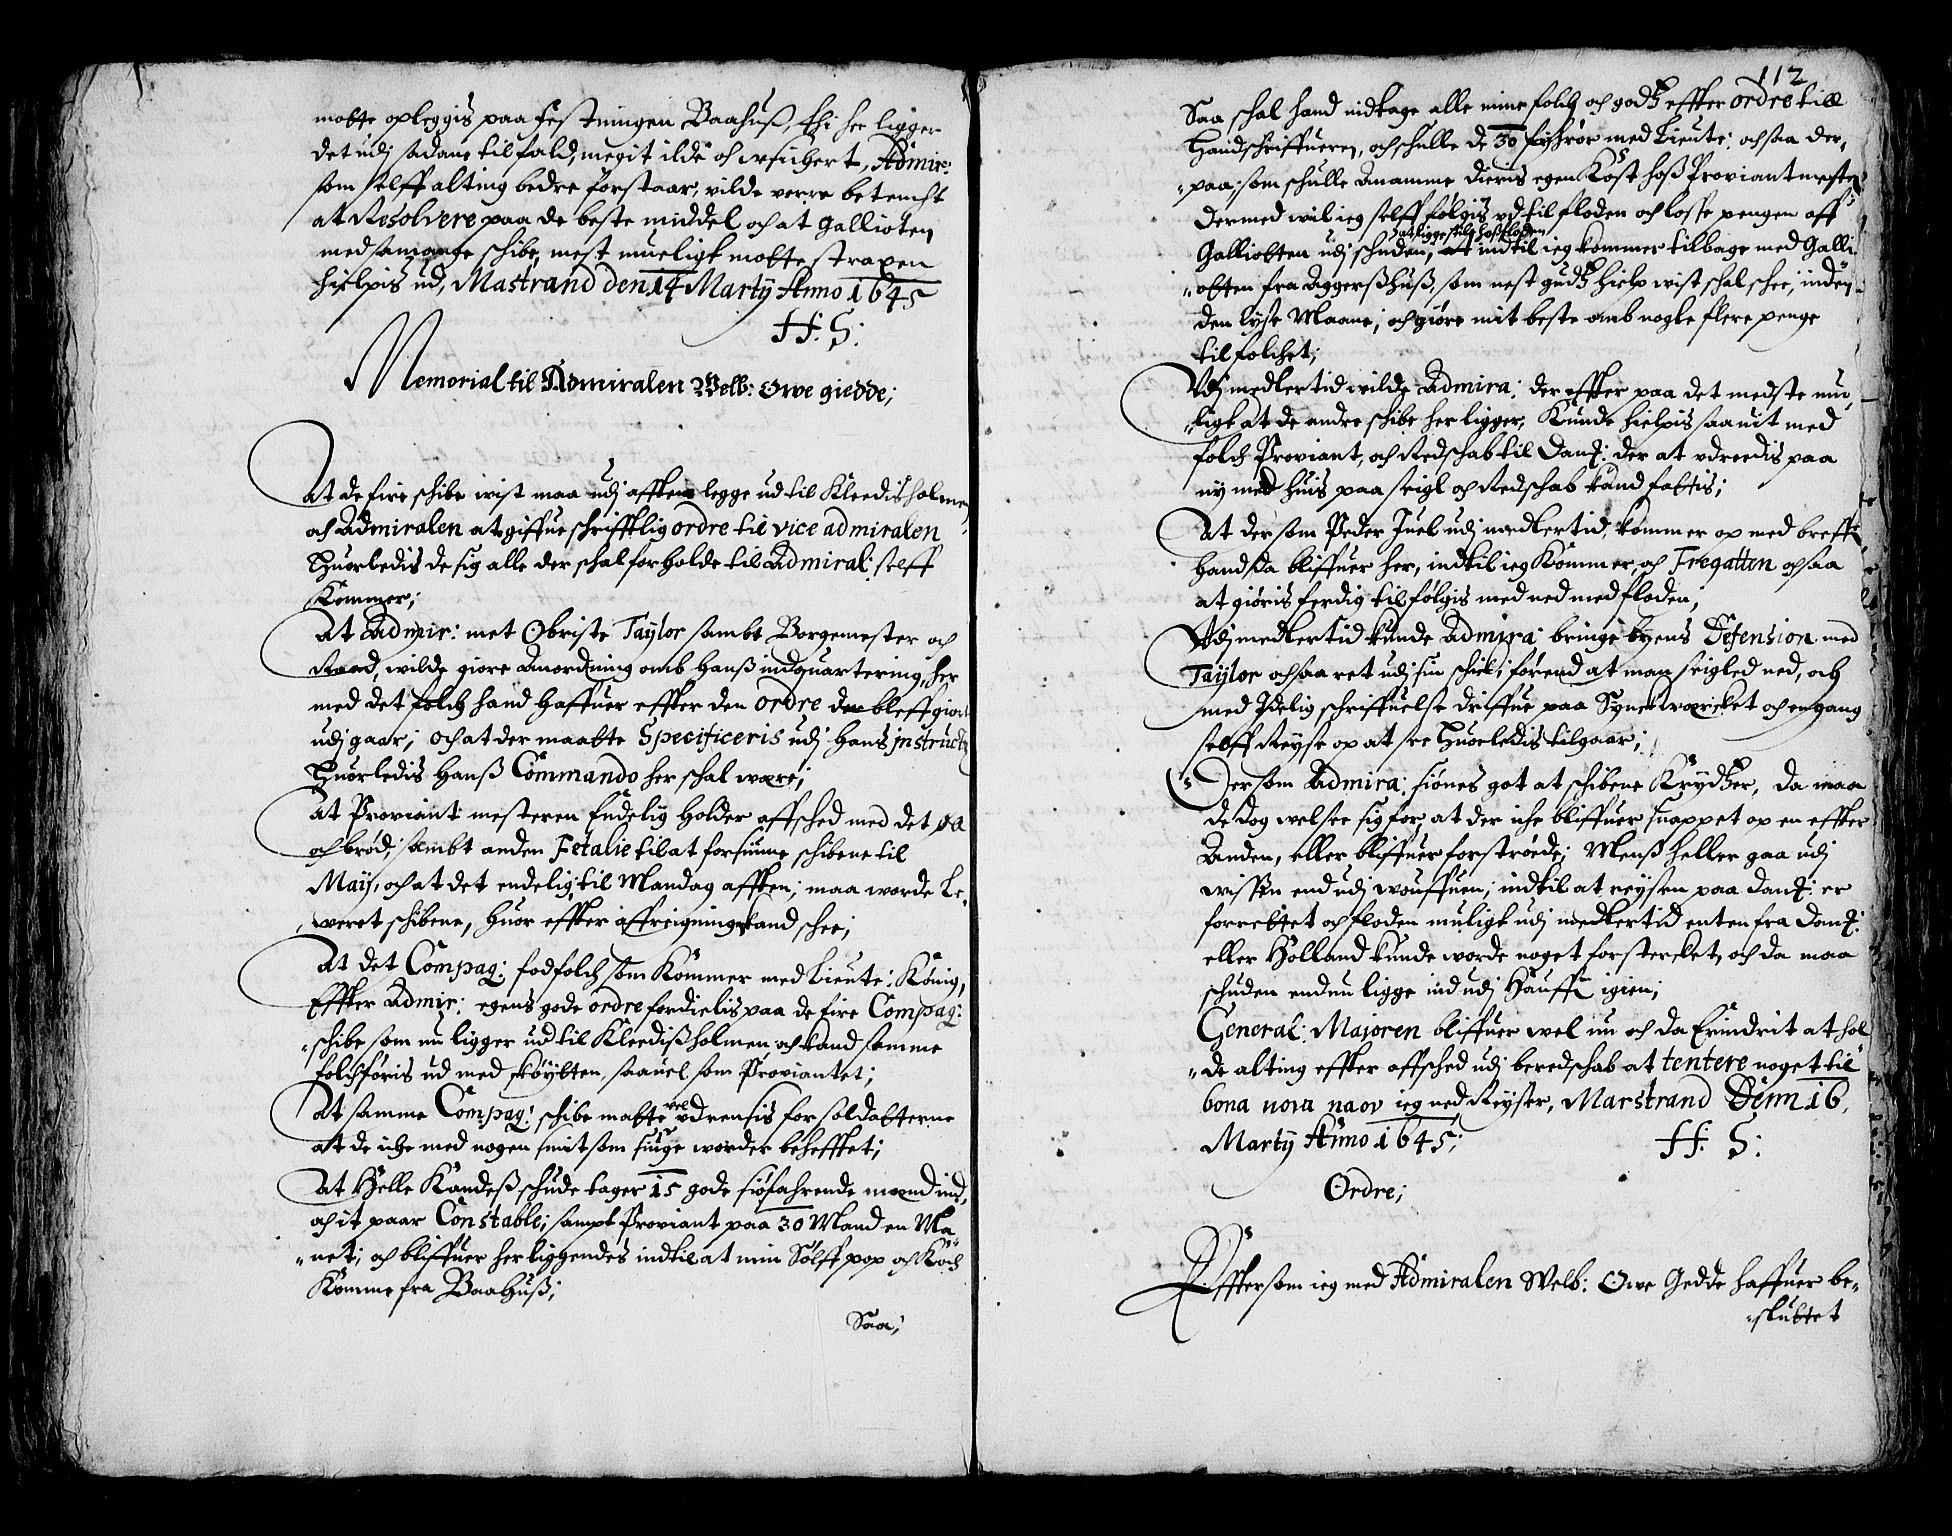 motte opleggis paa festningen Baahuß, thi her ligger
det udj sadane tilfald, megit ilde och usichert, Admir:
som selff alting bedre forstaar, vilde verre betencht
at Resolvere paa de beste middel och at Gallioten
med samange schibe, mest mueligt motte straxen
hielpis ud, Mastrand den 14 Martij Anno 1645
H: S:
Memorial til Admiralen Welb: Owe giedde;
At de fire schibe wist maa udj afften legge ud til Kleedisholmen
och Admiralen at giffue schrifftlig ordre til vice admiralen
Huorledis de sig alle der schal forholde til Admiral: selff
Kommer;
At Admir: met Obriste Taylor sambt Borgemester och
Raad, wilde giore Anordning omb hanß indquartering, her
med det folch hand haffuer effter den ordre der bleff giort
udj gaar; och at der maatte Specificeris udj hans instructz
Huorledis hanß Commando her schal wære;
At Proviant mesteren Endelig holder affsched med det øll
och brød, sambt anden Fetalie til at forsiune schibene til
Maij, och at det endelig til Mandag afften; maa worde Le,
,weret schibene, huor effter affreigning kand schee;
At det Compag: fodfolch som Kommer med Lieute: König,
Effter Admir: egens gode ordre fordielis paa de fire Compag:
"schibe som nu ligger ud til Kleedißholmen och kand samme
folch føris ud med skøytten, saauel som Proviantet;
At samme Compag: schibe matte vel udrensis for soldatterne
at de iche med nogen smitsom siuge worder behefftet;
At Helle Kandeß schude tager 15 gode siøfahrende mænd ind,
och it paar Constable; sampt Proviant paa 30 Mand en Ma"
"net; och bliffuer her liggendes indtil at min Sølff pop och Koch
Komme fra Baahuß;
Saa;
112
Saa schal hand indtage alle mine folch och godz effter ordre till
Handschriffueren, och schulle de 30 fyhrør med Lieute: och saa der,
"paa; som schulle Anamme dieris egen Kost hoß Proviantmester
Dermed wil ieg selff følgis ud til floden och losse pengen aff
at ligge stille hoß floden
Galliotten udj schuden, indtil ieg kommer tilbage med Galli
"otten fra Aggerßhuß, som nest gudz hielp wist schal schee, inden
den lyse Maane; och giøre mit beste omb nogle flere penge
til folchet;
Udj medlertid wilde Admira: der effter paa det medste mue,
"ligt at de andre schibe her ligger, Kunde hielpis saauit med
folch Proviant, och Redschab til Dantz: der at udreedis paa
ny med huis paa seigl och Redschab kand fattis;
At der som Peder Juel udj medlertid kommer op med breffue
hand da bliffuer her, indtil ieg Kommer, och Fregatten ochsaa
at giøris ferdig til følgis med ned med floden;
Udj medlertid kunde Admira: bringe byens Defension med
Taylor ochsaa ret udj sin schiel; førend at man seigled ned, och
med Idelig schriffuelse driffue paa Synewærcket och en gang
selff Reyse op at see huorledis tilgaar;
Dersom Admira: siønes got at schibene Krydtzer, da maa
de dog wel see sig for, at der iche bliffuer snappet op en effter
Anden, eller bliffuer forstrøede; Menß heller gaa udj
wissen end udj wouffuen; indtil at reysen paa Dantz: er
forrettet och floden muligt udj medlertid enten fra Dantz:
eller Holland kunde worde noget forstercket, och da maa
schuden endnu ligge ind udj Hauffn igien;
General: Majoren bliffuer wel nu och da Erindrit at hol
"de alting effter affsched udj beredschab at tentere noget til
bona nova naar ieg ned Reyser, Marstrand Denn 16,
Martij Anno 1645;
H: S:
Ordre;
Efftersom ieg med Admiralen Welb: Owe Gedde haffuer be"
"sluttet